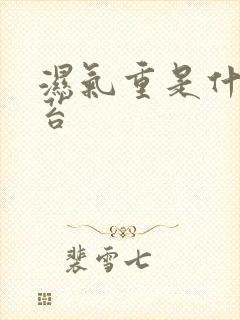 濕氣重是什
台
裴雪七